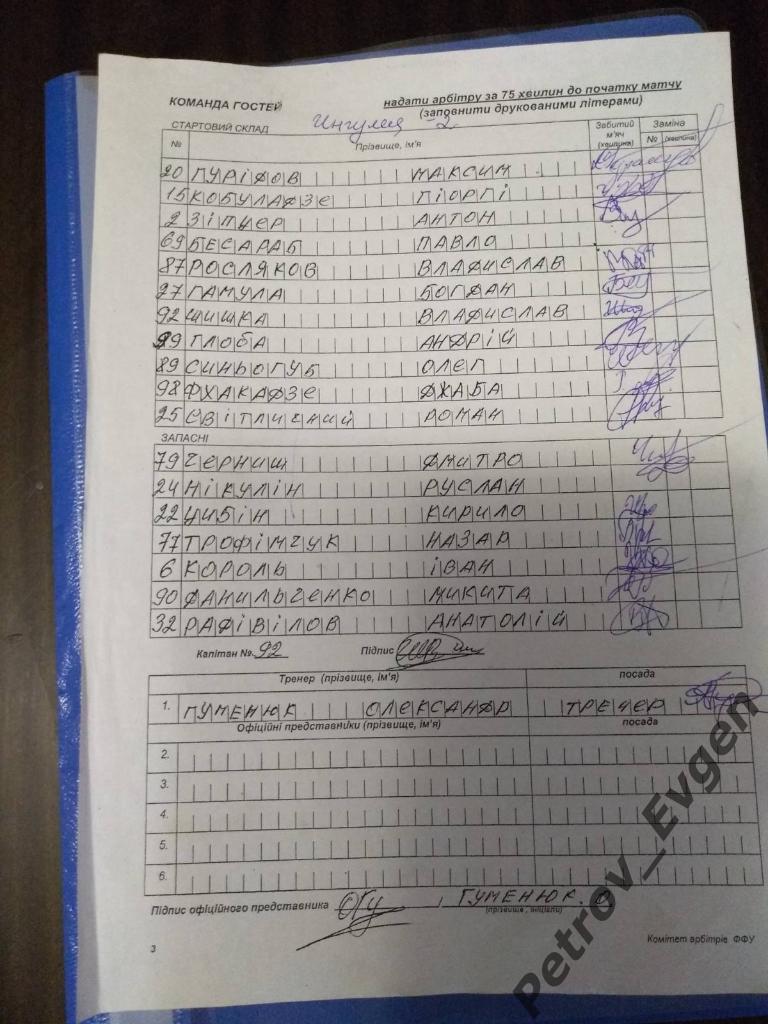 надати арбітру за 75 хвилин до початку матчу
КОМАНДА ГОСТЕЙ (заповнити друкованими літерами)
СТАРТОВИЙ СКЛАД Ингулец -2 Забитий м'яч (хвилина) Заміна
№ Прізвище, ім'я № (хвилина)
20 ПУРІФОВ МАКСИМ
15 КОБУЛАДЗЕ ГІОРГІ
2 ЗІТЦЕР АНТОН
69 БЕСАРАБ ПАВЛО
87 РОСЛЯКОВ ВЛАДИСЛАВ
27 ГАМУЛА БОГДАН
92 ШИШКА ВЛАДИСЛАВ
99 ГЛОБА АНДРІЙ
89 СИНЬОГУБ ОЛЕГ
98 ФХАКАДЗЕ ДЖАБА
25 СВІТЛИЧНИЙ РОМАН
ЗАПАСНІ
79 ЧЕРНИШ ДМИТРО
24 НІКУЛІН РУСЛАН
22 ЦИБІН КИРИЛО
77 ТРОФІМЧУК НАЗАР
6 КОРОЛЬ ІВАН
90 ДАНИЛЬЧЕНКО МИКИТА
32 РАФІВІЛОВ АНАТОЛІЙ
Капітан № 92 Підпис
Тренер (прізвище, ім'я) посада
1. ГУМЕНЮК ОЛЕКСАНДР ТРЕНЕР
Офіційні представники (прізвище, ім'я) посада
2.
3.
4.
5.
6.
Підпис офіційного представника ГУМЕНЮК. О
(прізвище, ініціали)
3 Комітет арбітрів ФФУ
Petrov_Evgen